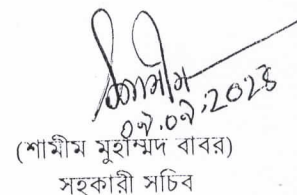 শামীম
০৭.০৭.২০২৪
(শামীম মুহাম্মদ বাবর)
সহকারী সচিব